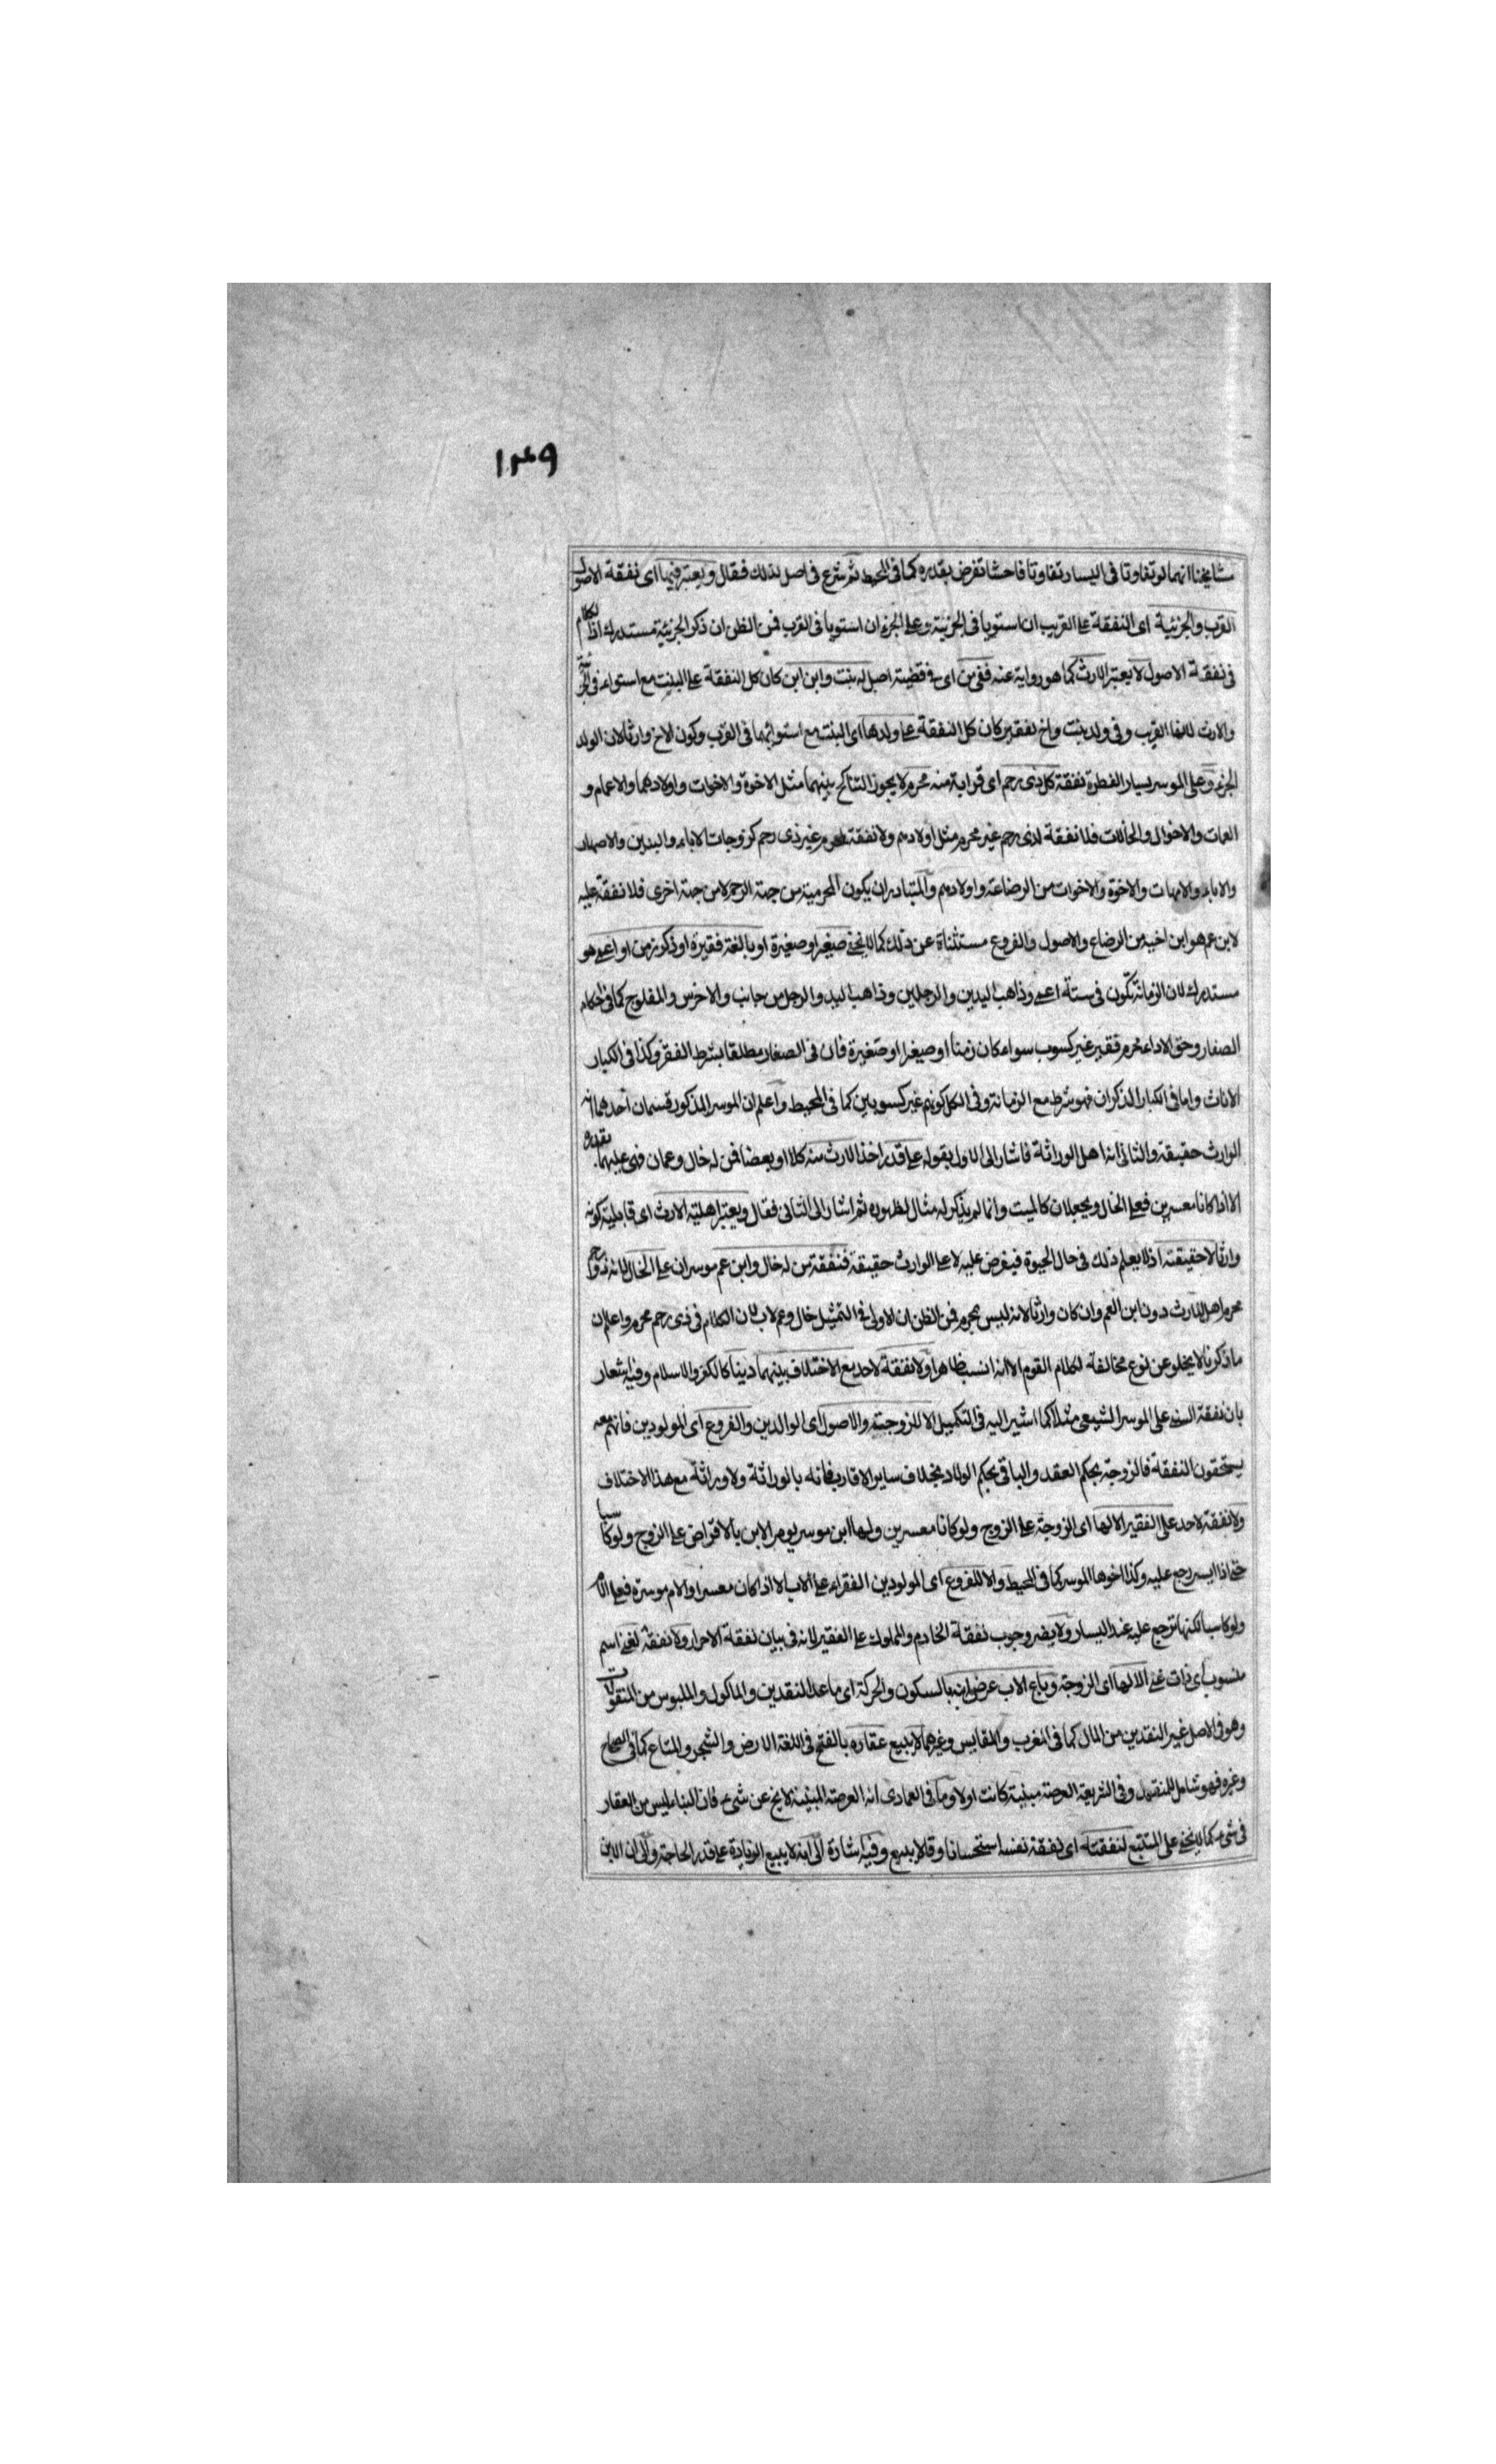 ١٣٩
مشايخنا انهما لو تفاوتا فى اليسار تفاوتا فاحشا تفرض بقدره كما فى المحيط ثم شرع فى اصل لذلك فقال ويعتبر فيها اى نفقة الاصول
القرب والجزئية اى النفقة على القريب ان استويا فى الجزئية وعلى الجزء ان استويا فى القرب فمن الظن ان ذكر الجزئية مستدرك اذ الكلام
فى نفقة الاصول لا يعتبر الارث كما هو رواية عنه ففى من اى فى قضية اصل له بنت وابن ابن كان كل النفقة على البنت مع استوائه فى الجزئية
والارث لانها القريب وفى ولد بنت واخ لفقير كان كل النفقة على ولدها اى البنت مع استوائهما فى القرب وكون الاخ وارثا لان الولد
الجزء وعلى الموسر يسار الفطرة نفقة كل ذى رحم اى قرابة منه محرم لا يجوز التناكح بينهما مثل الاخوة والاخوات واولادهما والاعمام و
العمات والاخوال والخالات فلا نفقة لذى رحم غير محرم مثل اولادهم ولا نفقة لمحرم غير ذى رحم كزوجات الاباء والبنين والاصهار
والاباء والامهات والاخوة والاخوات من الرضاعة واولادهم والمتبادر ان يكون المحرمية من جهة الرحم لا من جهة اخرى فلا نفقة عليه
لابن عم هو ابن اخيه من الرضاع والاصول والفروع مستثناة عن ذلك كما لا يخفى صغير او صغيرة او بالغة فقيرة او ذكر زمن او اعمى هو
مستدرك لان الزمانة تكون فى ستة اعمى وذاهب اليدين والرجلين وذاهب اليد والرجل من جانب والاخرس والمفلوج كما فى احكام
الصغار وحق الاداء محرم فقير غير كسوب سواء كان زمنا او صغيرا او صغيرة فان فى الصغار مطلقا يشرط الفقر وكذا فى الكبار
الاناث واما فى الكبار الذكران فهو شرط مع الزمانة وفى الكل كونهم غير كسوبين كما فى المحيط واعلم ان الموسر المذكور قسمان احدهما انه
الوارث حقيقة والثانى انه اهل الوراثة فاشار الى الاول بقوله على قدر اخذ الارث منه كلا او بعضا فمن له خال وعمان فهى عليهما بقدره
الا اذا كانا معسرين فعلى الخال ويجعلان كالميت وانما لم يذكر له مثال لظهوره ثم اشار الى الثانى فقال ويعتبر اهلية الارث اى قابلية كونه
وارثا لا حقيقته اذ لا يعلم ذلك فى حال الحيوة فيفرض عليه لا على الوارث حقيقة فنفقة من له خال وابن عم موسران على الخال لانه ذو رحم
محرم اهل للارث دون ابن العم وان كان وارثا لانه ليس بمحرم فمن الظن ان الاولى فى التمثيل خال وعم لاب لان الكلام فى ذى رحم محرم واعلم ان
ما ذكرنا لا يخلو عن نوع مخالفة لكلام القوم الا انه انسب ظاهرا ولا نفقة لاحد مع الاختلاف بينهما دينا كالكفر والاسلام وفيه اشعار
بان نفقة السنى على الموسر الشيعى مثلا كما اشير اليه فى التكميل الا للزوجة والاصول اى الوالدين والفروع اى المولودين فانهم معه
يستحقون النفقة فالزوجة بحكم العقد والباقى بحكم الولاد بخلاف ساير الاقارب فانه بالوراثة ولا وراثة مع هذا الاختلاف
ولا نفقة لاحد على الفقير الا لها اى الزوجة على الزوج ولو كانا معسرين ولها ابن موسر يومر الابن بالاقراض على الزوج ولو كاسبا
حتى اذا ايسر رجع عليه وكذا اخوها الموسر كما فى المحيط والا للفروع اى المولودين الفقراء على الاب الا اذا كان معسرا والام موسرة فعلى الام
ولو كاسبا لكنها ترجع عليه عند اليسار ولا يضر وجوب نفقة الخادم والمملوك على الفقير لانه فى بيان نفقة الاحرار ولا نفقة لغنى اسم
منسوب اى ذات غنى الا لها اى الزوجة وباع الاب عرض ابنه بالسكون والحركة اى ما عدا النقدين والماكول والملبوس من المنقولات
وهو فى الاصل غير النقدين من المال كما فى المغرب والمقايس وغيرهما لا يبيع عقاره بالفتح فى اللغة الارض والشجر والمتاع كما فى الصحاح
وغيره فهو شامل للمنقول وفى الشريعة العرصة مبنية كانت اولا وما فى العمادى انه العرصة المبنية لا يخ عن شىء فان البناء ليس من العقار
فى شىء كما لا يخفى على المتتبع لنفقته اى لنفقة نفسه استحسانا وقالا لا يبيع وفيه اشارة الى انه لا يبيع الزيادة على قدر الحاجة والى ان الابن